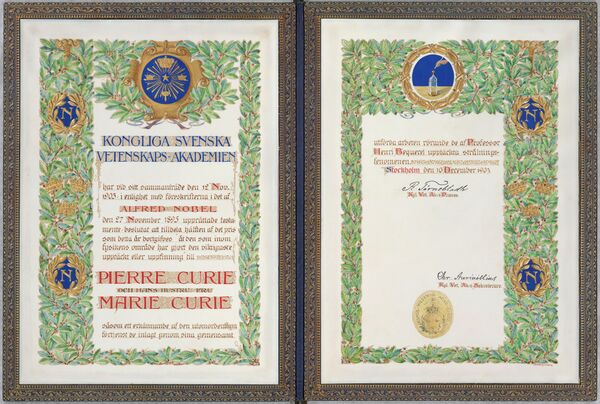 KONGLIGA SVENSKA
VETENSKAPS-AKADEMIEN
har vid sitt sammanträde den 12 Nov.
1903 i enlighet med föreskrifterna i det af
ALFRED NOBEL
den 27 November 1895 upprättade testa-
mente beslutat att tilldela hälften af det pris
som detta år bortgifves åt den som inom
fysikens område har gjort den viktigaste
upptäckt eller uppfinning till
PIERRE CURIE
OCH HANS HUSTRU FRU
MARIE CURIE
såsom ett erkännande af den utomordentliga
förtjenst de inlagt genom sina gemensamt
utförda arbeten rörande de af Professor
Henri Bequerel upptäckta strålnings-
fenomenen.
Stockholm den 10 December 1903.
Kgl. Vet. Ak:s Præses.
Chr. Aurivillius
Kgl. Vet. Ak:s Sekreterare.
N
N
N
N